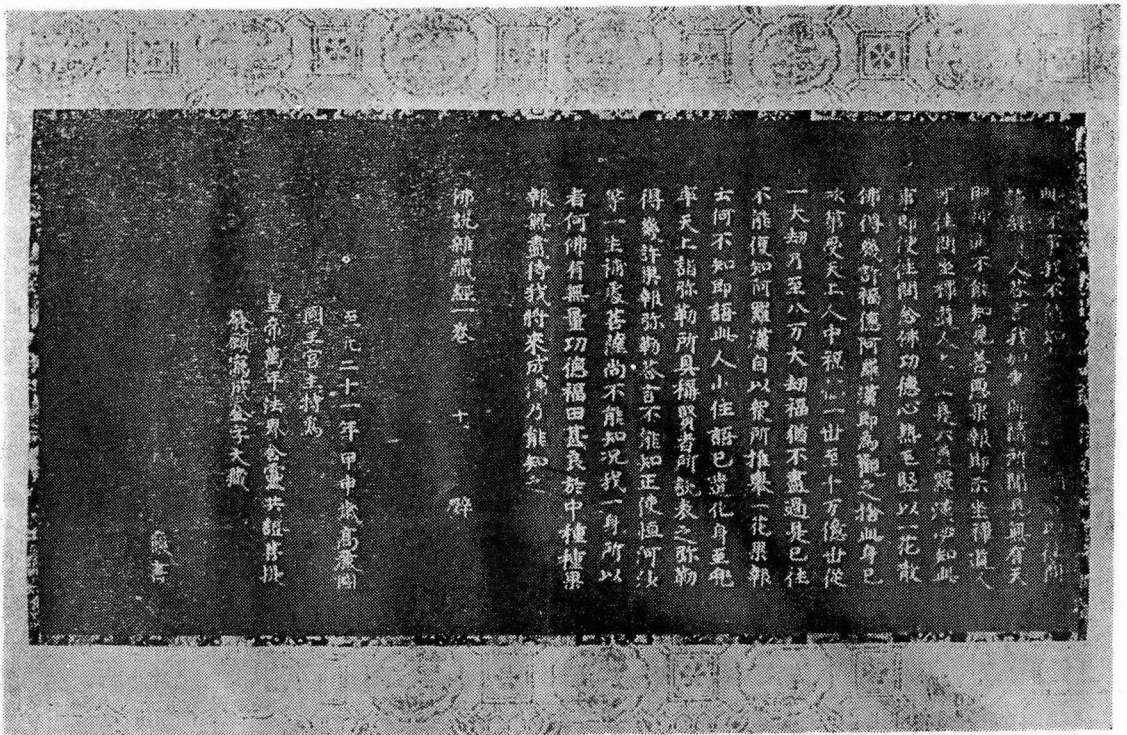 事我不能知
人答言我如
不能知見善惡果報即示坐禪道人
可往問坐禪道人
事即便往問念佛功德心熱毛竪以一花散
佛得幾許福德阿羅漢即為觀之捨此身已
次第受天上人中 一世至十万億世從
一大劫乃至八万大劫福猶不盡過是已往
不能復知阿羅漢自以衆所推舉一花果報
云何不知即語此人小住語已遣化身至兜
率天上詣弥勒所具稱賢者所說表之弥勒
得幾許果報弥勒荅言不能知正使恒河沙
等一生補處菩薩尚不能知况我一身所以
者何佛有無量功德福田甚良於中種種果
報無盡待我將來成佛乃能知之
佛說雜藏經一卷 十 壁
至元二十一年甲申歲高麗國
國王宮主特為
皇帝萬年法界含靈共證菩提
發願寫成金字大藏
書